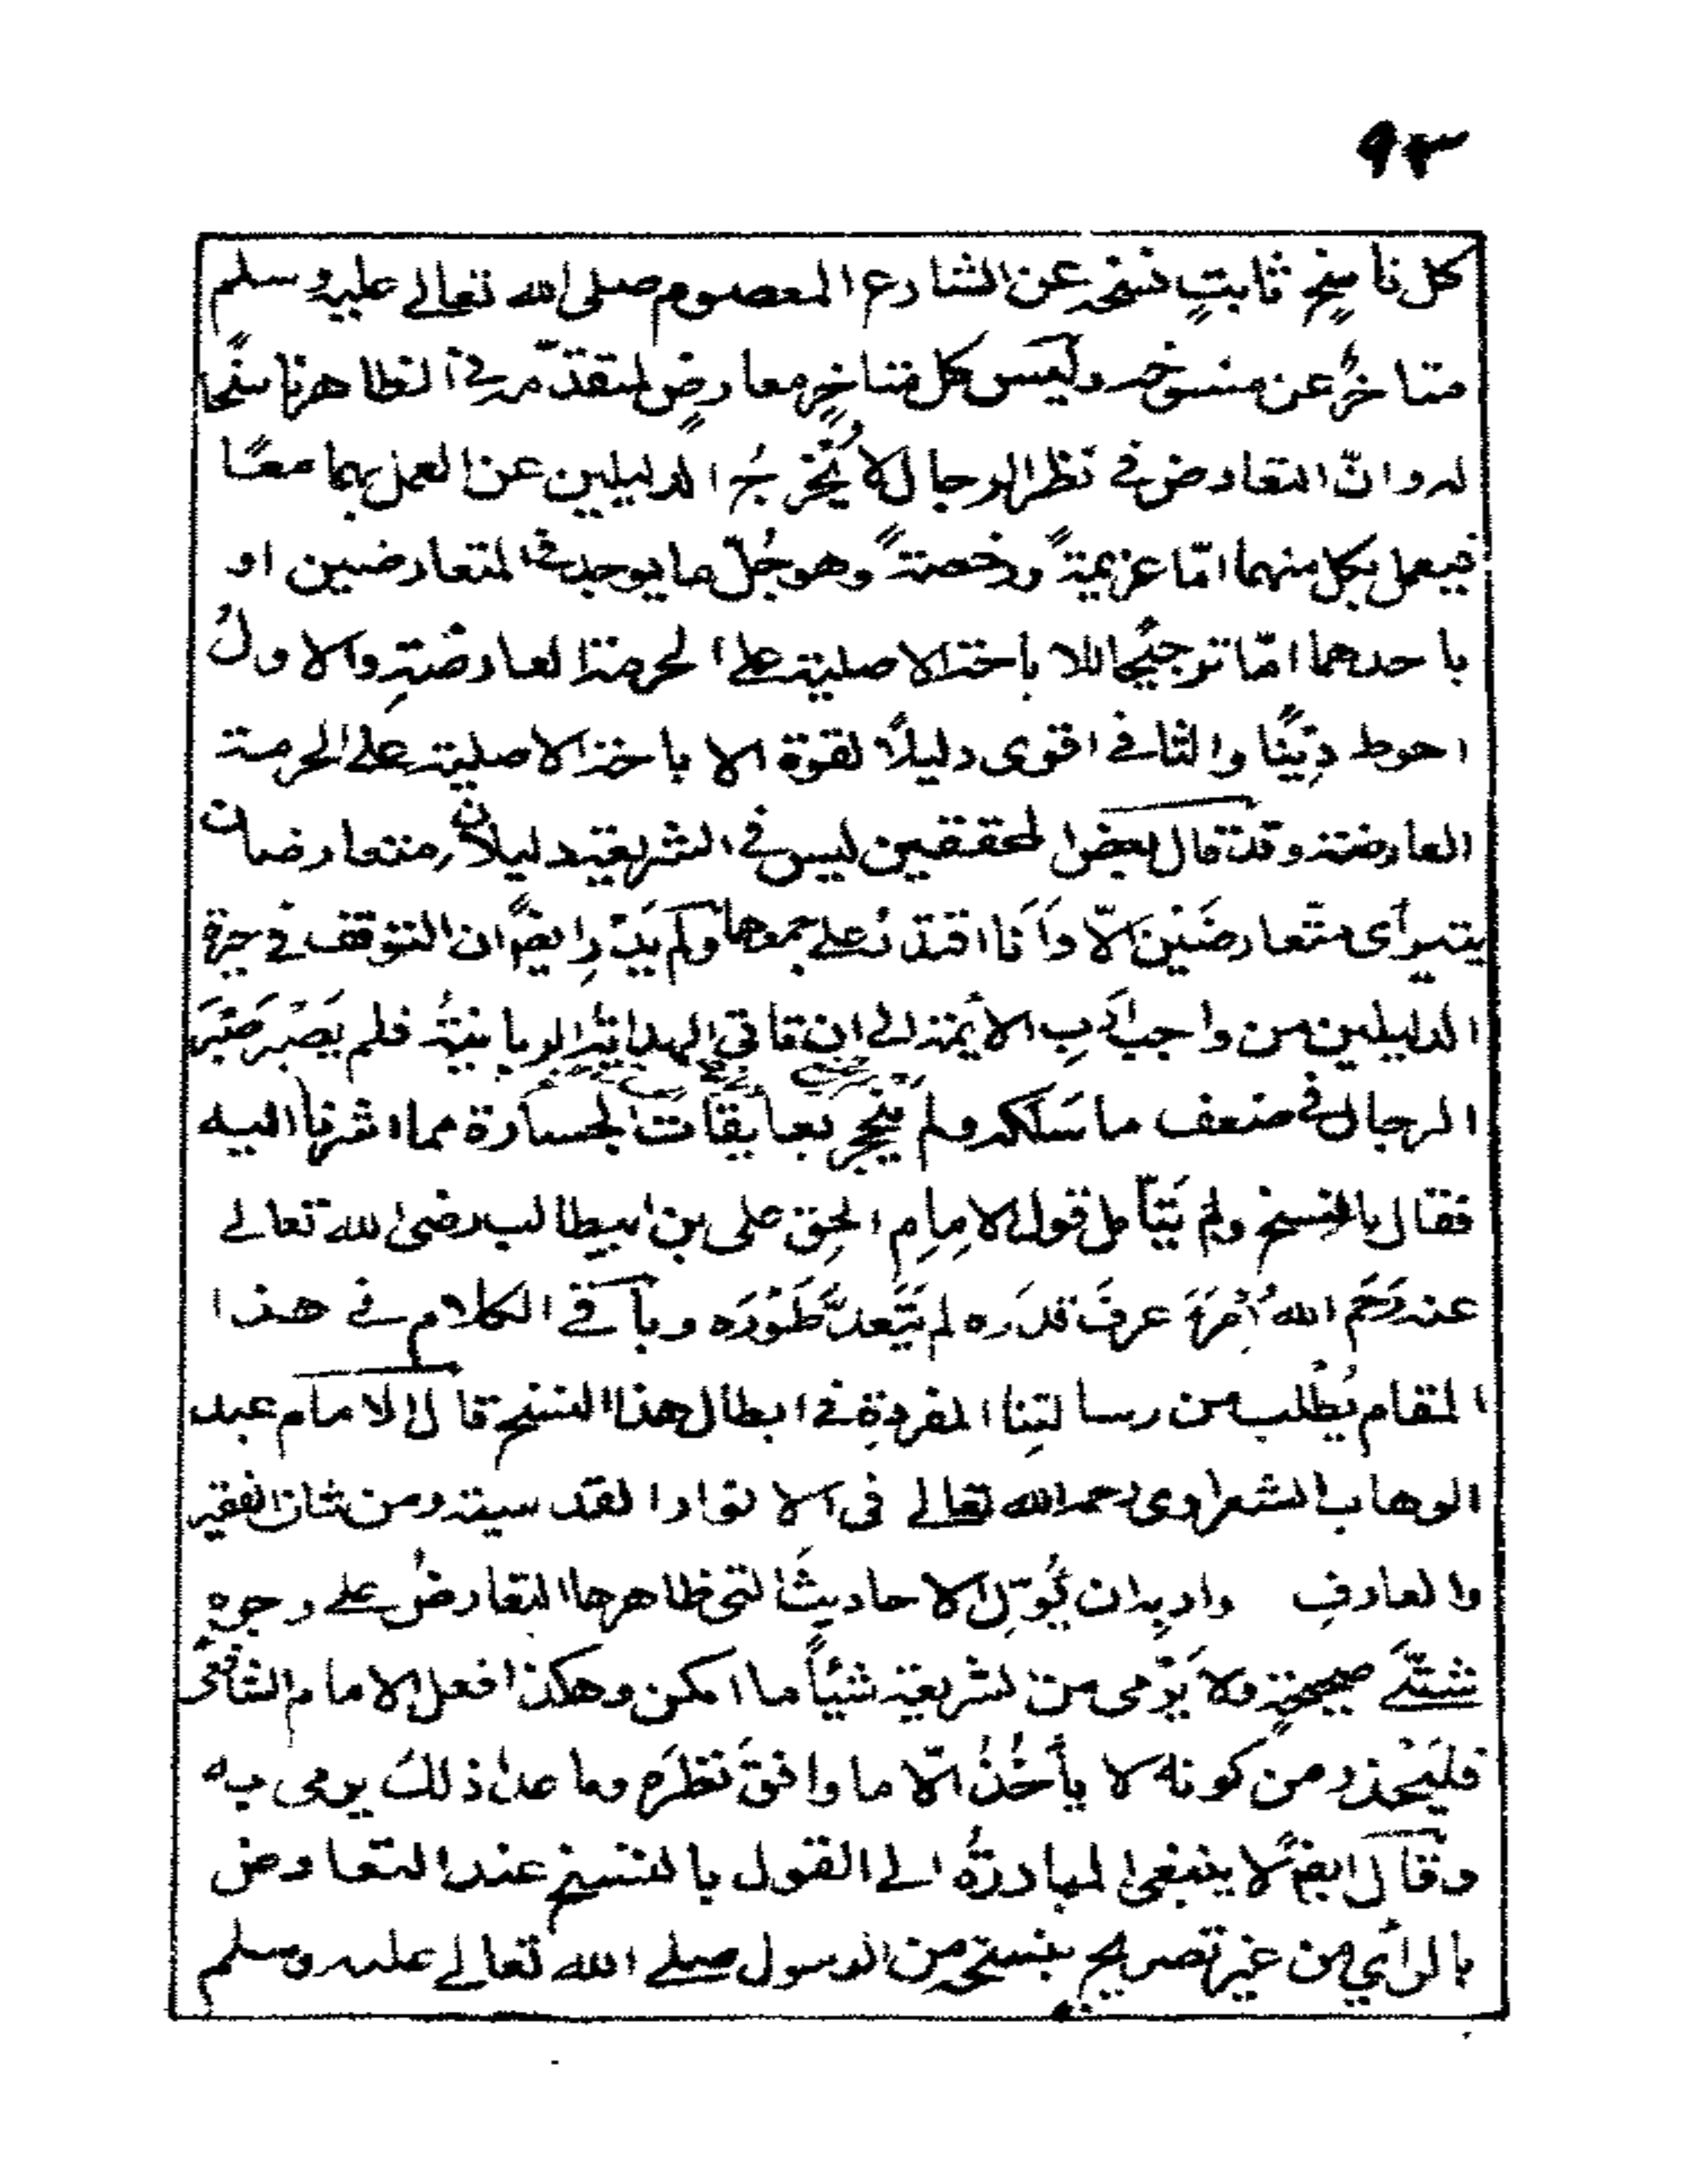 ٩٣
كل ناسخٍ ثابتٍ نسخه عن الشارع المعصوم صلى الله تعالى عليه وسلم
متاخرٌ عن منسوخه وليس كل متاخرٍ معارضٍ لمتقدّمه في الظاهر ناسخًا
له وانّ التعارض في نظر الرجال لا يُخْرجُ الدليلين عن العمل بهما معًا
فيعمل بكل منهما امّا عزيمةً ورخصةً وهو جُلّ ما يوجد في المتعارضين او
باحدهما امّا ترجيحًا للاباحة الاصلية على الحرمة العارضةِ والاولُ
احوط دِينًا والثاني اقوى دليلاً لقوة الاباحة الاصلية على الحرمة
العارضة وقد قال بعض المحققين ليس في الشريعة دليلان متعارضان
يتراأى متعارضَيْن الّا وَاَنَا اقتدرُ على جمعهما ولم يَدْرِ ايضًا ان التوقف في حيرة
الدليلين من واجب اَدَبِ الائمة الى ان تاتي الهدايةُ الربانيةُ فلم يَصْبر صَبْرَ
الرجال في ضعف ما سَلَكه ولم ينجر بعايقات الجسارة مما اشرنا اليه
فقال بالنسخ ولم يَتأمل قول الامامِ الحقِ على بن ابيطالب رضى الله تعالى
عنه رَحَم اللهُ امْرَءً عرفَ قدرَه لم يَتَعدَّ طَوْرَه وباقي الكلام في هذا
المقام يُطْلب من رسالتِنا المفردةِ في ابطال هذا النسخ قال الامام عبد
الوهاب الشعراوى رحمه الله تعالى فى الانوار القدسية ومن شان الفقير
والعارفِ وادبه ان يُوّل الاحاديثَ التى ظاهرها التعارضُ على وجوهٍ
شتّىَ صحيحةٍ ولا يَرْمى من الشريعة شيئًا ما امكن وهكذا فعل الامام الشافعىُّ
فليَحْذر من كونه لا يأخُذُ الّا ما وافقَ نظرَه وما عدا ذلكَ يرمى به
وقال ايضًا لا ينبغى المبادرةُ الى القول بالنسخ عند التعارض
بالرأي من غير تصريحٍ بنسخه من الرسول صلى الله تعالى عليه وسلم